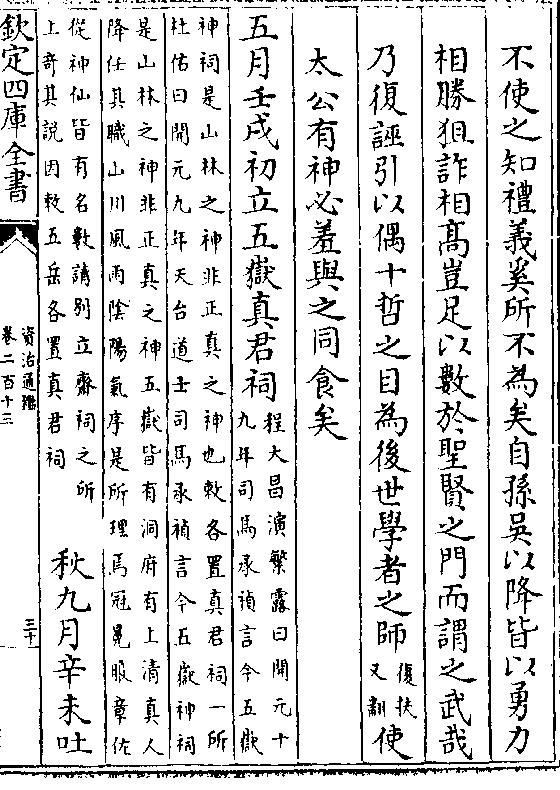 不使之知禮義奚所不為矣自孫吳以降皆以勇力
相勝狙詐相髙豈足以數於聖賢之門而謂之武哉
乃復誣引以偶十哲之目為後世學者之師復扶又翻使
太公有神必羞與之同食矣
五月壬戌初立五嶽真君祠程大昌演繁露曰開元十
九年司馬承禎言今五嶽
神祠是山林之神非正真之神也敕各置真君祠一所
杜佑曰開元九年天台道士司馬承禎言今五嶽神祠
是山林之神非正真之神五嶽皆有洞府有上清真人
降任其職山川風雨陰陽氣序是所理焉冠冕服章佐
從神仙皆有名數請别立齋祠之所
上奇其說因敕五岳各置真君祠
秋九月辛未吐
欽定四庫全書
資治通鑑
卷二百十三
三十